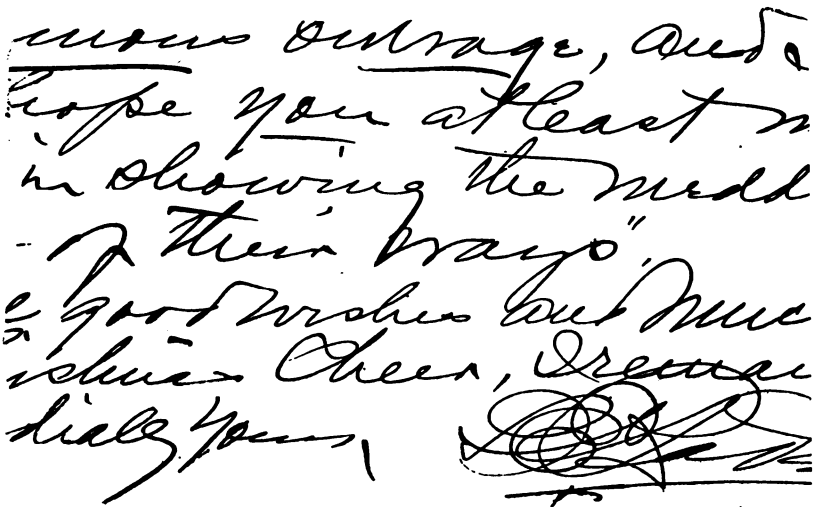 mous outrage, and
hope you at least m
in showing the medd
- of their ways".
good wishes and much
istmas Cheer, I remain
dially yours,